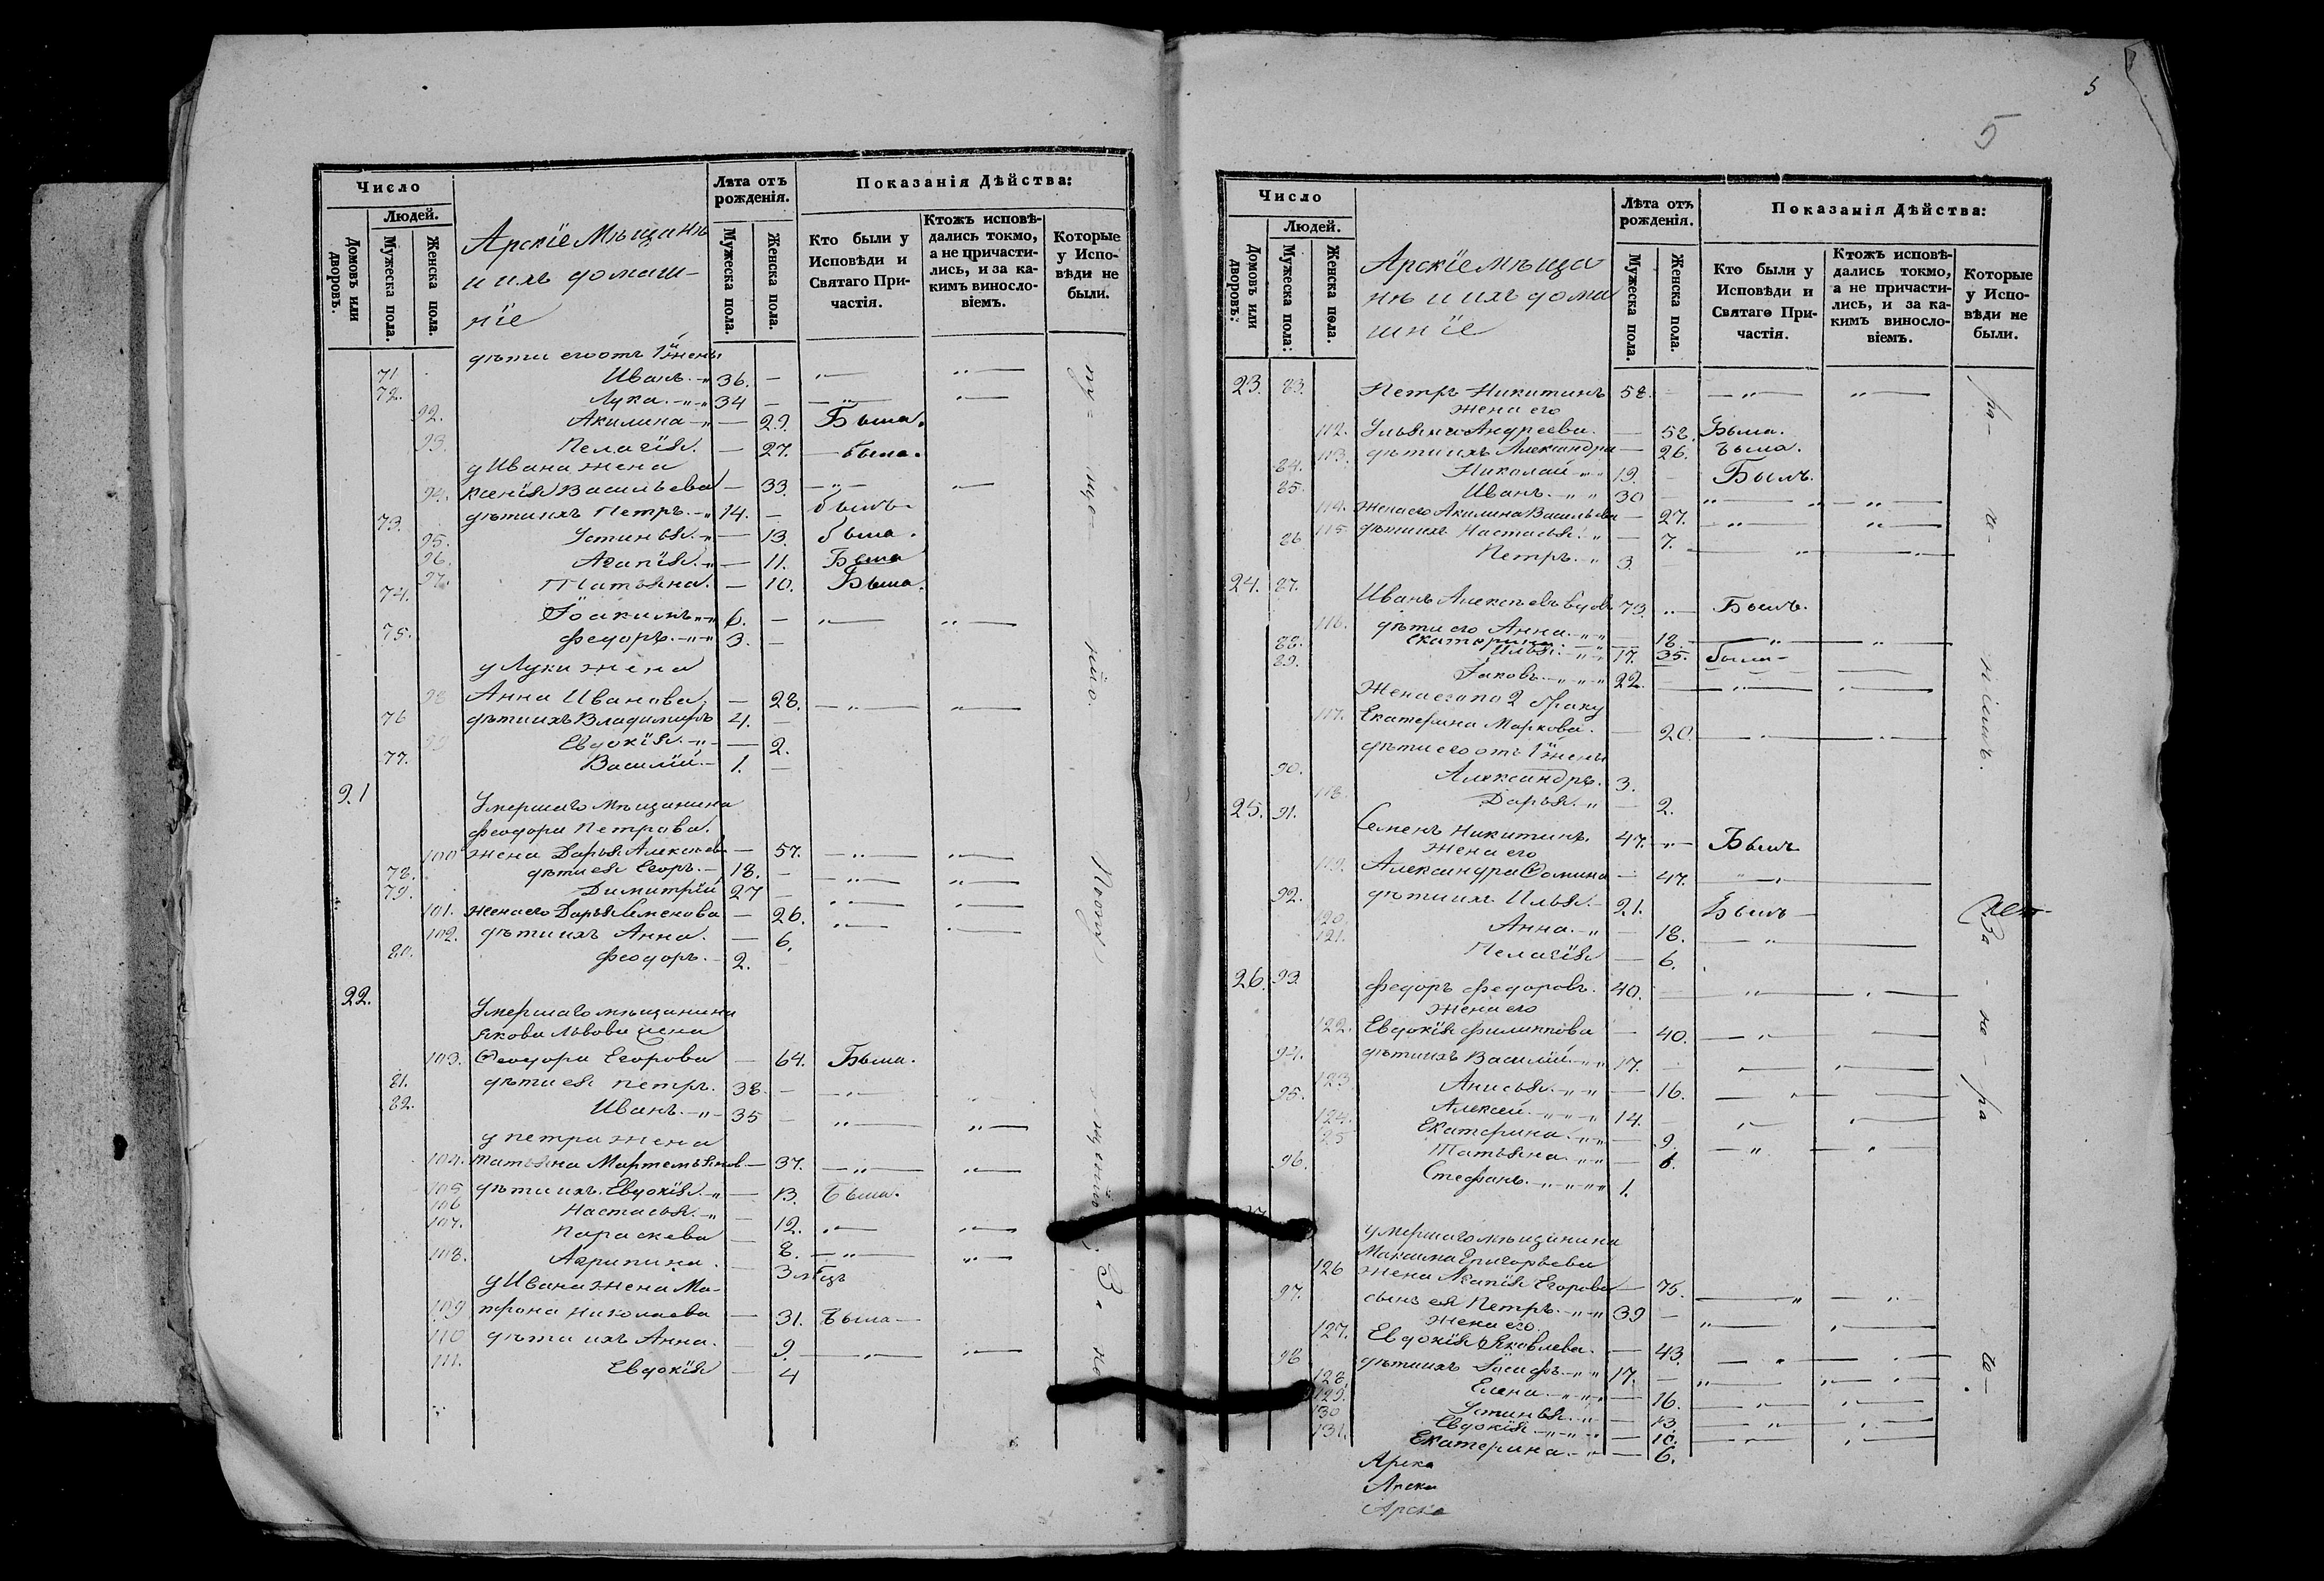 Число
Людей.
Домовъ или дворовъ.
Мужеска пола.
Женска пола.
Арскїе Мѣщанѣ
и ихъ домаш-
нїе
Лѣта отъ рожденія.
Мужеска пола.
Женска пола.
Показанія Дѣйства:
Кто были у Исповѣди и Святаго Причастія.
Ктожъ исповѣдались токмо, а не причастились, и за какимъ винословіемъ.
Которые у Исповѣди не были.
дѣти его отъ 1й жены
71 Иванъ 36. —
72. Лука 34 —
92. Акилина — 29. Была.
93. Пелагїя. — 27. была.
у Ивана жена
94. Ксенїя Васильева — 33.
73. дѣти ихъ Петръ 14. — былъ
95. Устинья — 13. была.
96. Агапїя — 11. Была
97. Татьяна. — 10. Была.
74. Іоакимъ 6. —
75. Федоръ 3. —
у Луки жена
98 Анна Иванова. — 28.
76 дѣти ихъ Владимиръ 4. —
99 Евдокїя — 2.
77. Василїй 1. —
21 Умершаго мѣщанина
Феодора Петрова.
100 жена Дарья Алексѣев — 57.
78. дѣти ея Егоръ. 18. —
79. Димитрїй 27 —
101. жена его Дарья Семенова — 26.
102. дѣти ихъ Анна. — 6.
80. Феодоръ. 2. —
22. Умершаго мѣщанина
Якова Львова жена
103. Феодора Егорова — 64. Была.
81. дѣти ея Петръ. 38. —
82. Иванъ. 35 —
у Петра жена
104. Татьяна Мартемьянов — 37.
105 дѣти ихъ Евдокїя — 13. Была.
106 Настасья — 12.
107. Параскева — 8.
108. Агрипина. — 3 мѣц
у Ивана жена Ма-
109 трона Николаева — 31. Была
110 дѣти ихъ Анна. — 9.
111. Евдокїя — 4
5
5
Число
Людей.
Домовъ или дворовъ:
Мужеска пола:
Женска пола.
Арскїе мѣща
нѣ и ихъ дома
шнїе
Лѣта отъ рожденія.
Мужеска пола.
Женска пола.
Показанія Дѣйства:
Кто были у Исповѣди и Святаго Причастія.
Ктожъ исповѣдались токмо, а не причастились, и за какимъ винословіемъ.
Которые у Исповѣди не были.
23. 83. Петръ Никитинъ 58. —
жена его
112. Ульяна Андреева. — 58. Была.
113. дѣти ихъ Александра — 26. Была.
84. Николай 19. — Былъ.
85. Иванъ. 30 —
114. жена его Акилина Васильева — 27.
115 дѣти ихъ Настасья — 7.
86 Петръ. 3. —
24. 87. Иванъ Алексѣевъ вдов 73. Былъ.
116. дѣти его Анна — 18.
Екатерина — 35. была
88. Илья 17.
89. Іаковъ 22. —
Жена его по 2 браку
117. Екатерина Маркова. — 20.
дѣти его отъ 1й жены
90. Александръ. 3.
118. Дарья — 2.
25. 91. Семенъ Никитинъ. 47. Былъ
жена его
119. Александра Фомина — 47.
92. дѣти ихъ Илья. 21. Былъ
120. Анна. — 18.
121. Пелагїя — 6.
26. 93. Федоръ Федоровъ. 40. —
жена его
122. Евдокїя Филиппова — 40.
94. дѣти ихъ Василїй 17. —
123 Анисья — 16.
95. Алексей 14. —
124. Екатерина — 9.
125 Татьяна — 6.
96. Стефанъ 1.
умершаго мѣщанина
Максима Григорьева
126 жена Агапїя Егорова — 75.
97. сынъ ея Петръ 39 —
жена его.
127. Евдокїя Яковлева. — 43
98 дѣти ихъ Іосифъ 17. —
128. Елена — 16.
129. Устинья — 13
130 Евдокїя — 10.
131. Екатерина — 6.
Арска
Арска
Арска